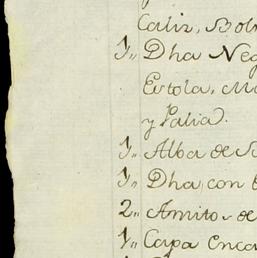 Caliz, Bols
1,, Dha Neg
Estola, Ma
y Palia.
1,, Alba de
1,, Dha con
2,, Amito de
1,, Capa Enca